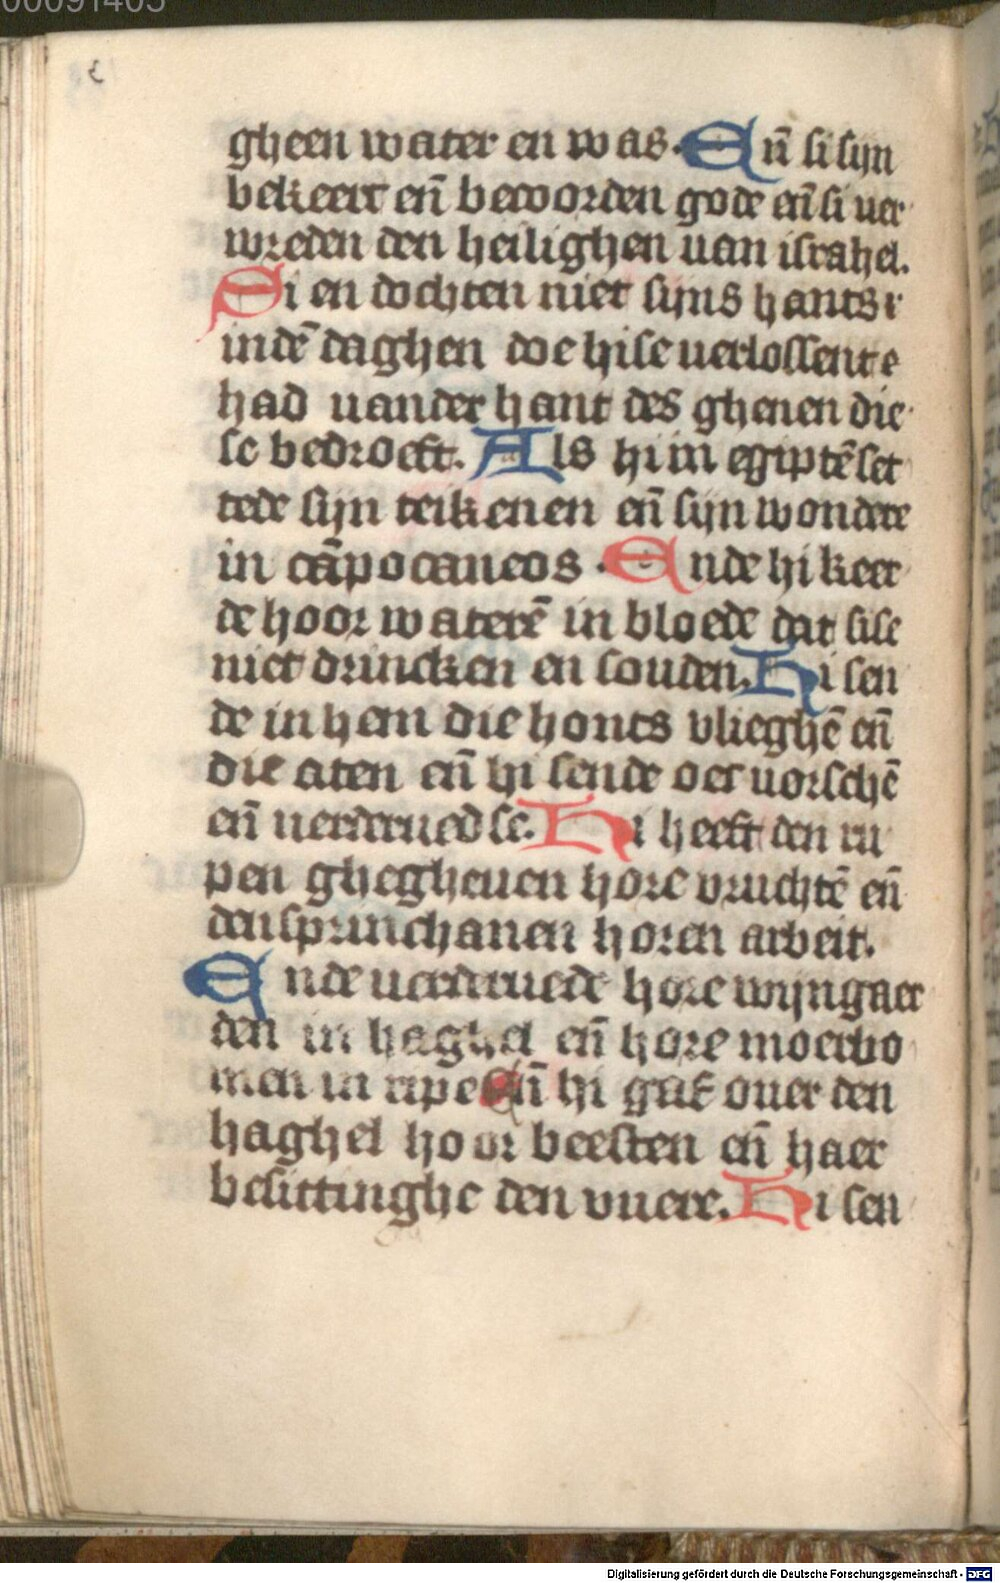 00091405
gheen water en was. En̄ si sijn
bekeert en̄ becoorden gode en̄ si uer
wreden den heilighen uan israhel.
Si en dochten niet sijns hants
indē daghen doe hise uerlossent
had uander hant des ghenen die
se bedroeft. Als hi in egiptē set
tede sijn teikenen en̄ sijn wondere
in cāpo caneos. Ende hi keer
de hoor waterē in bloede dat sise
niet drincken en souden. Hi sen
de in hem die honts vlieghē en̄
die aten en̄ hi sende oec uorschē
en̄ uerderued se. Hi heeft den ru
pen ghegheuen hore vruchtē en̄
den sprinchanen horen arbeit.
Ende uerderuede hore wijngaer
den in haghel en̄ hore moerbo
men in ripe En̄ hi gaf ouer den
haghel hoor beesten en̄ haer
besittinghe den vuere. Hi sen
Digitalisierung gefördert durch die Deutsche Forschungsgemeinschaft - DFG